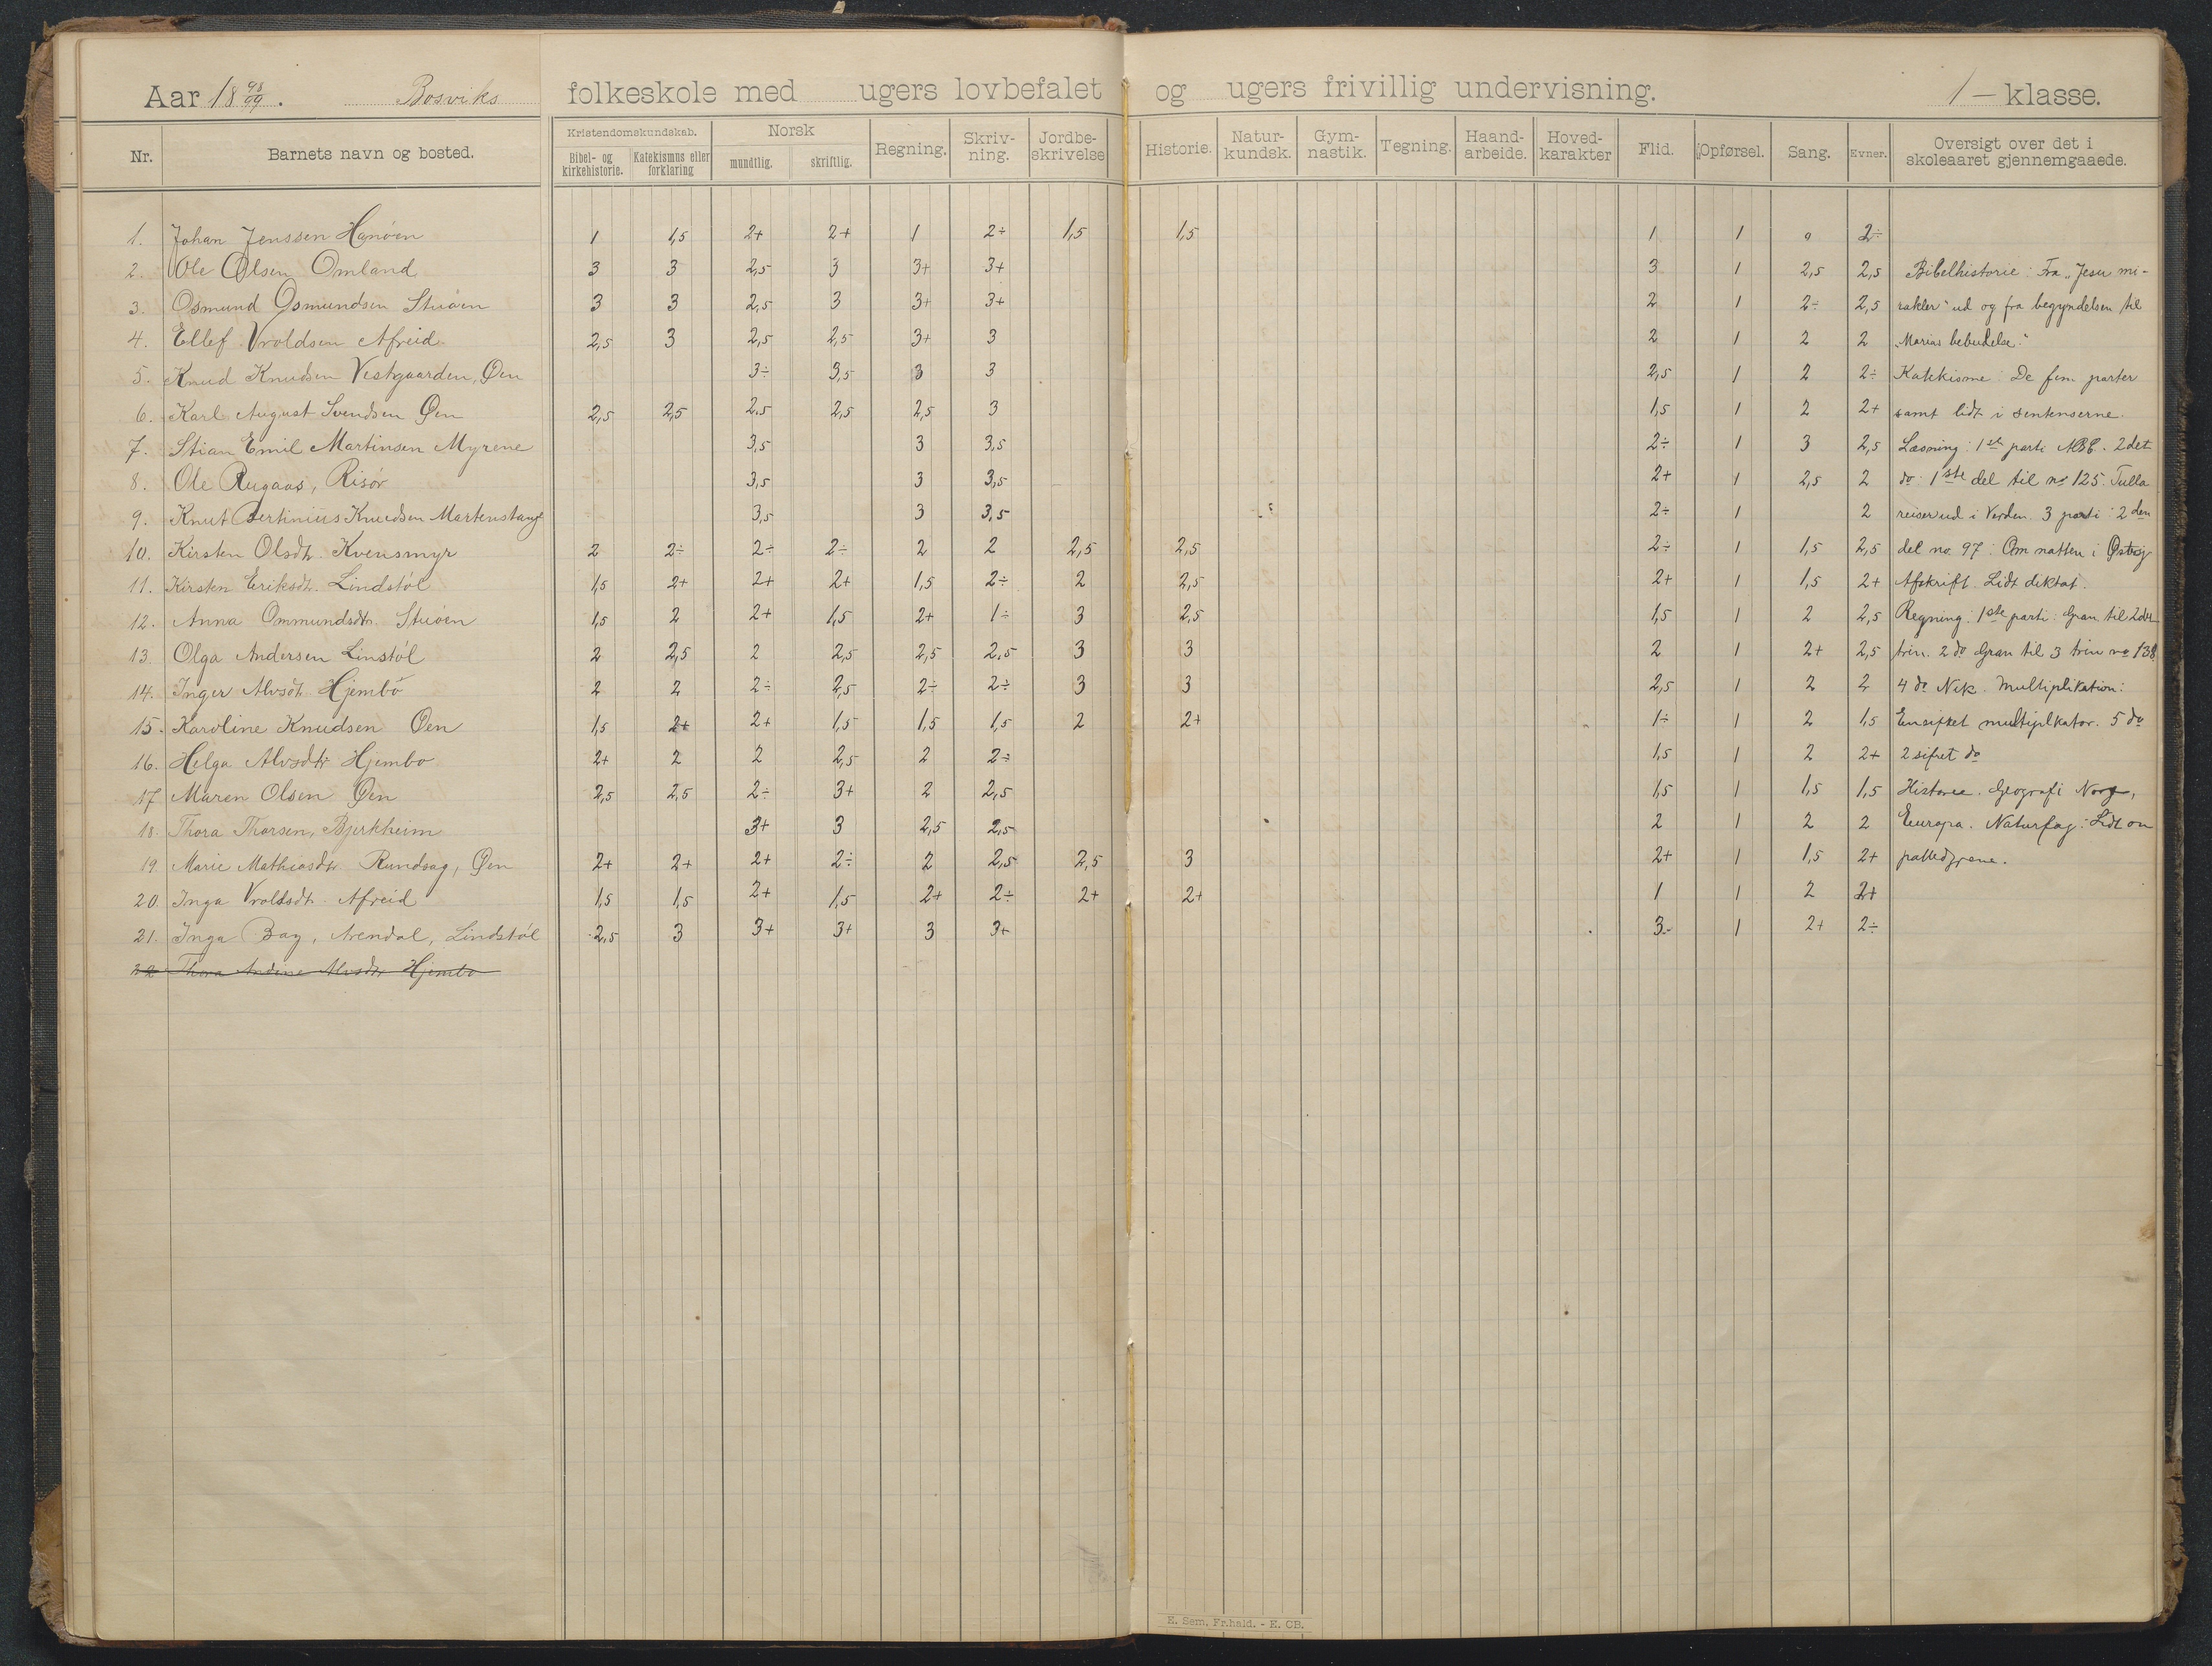 Aar 18 98/99. Bosviks folkeskole med ugers lovbefalet og ugers frivillig undervisning. 1 – klasse.
Nr. Barnets navn og bosted. Kristendomskundskab. Norsk Regning. Skriv-ning. Jordbe-skrivelse Historie. Natur-kundsk. Gym-nastik. Tegning. Haand-arbeide. Hoved-karakter Flid. Opførsel. Sang. Evner. Oversigt over det i skoleaaret gjennemgaaede.
Bibel- og kirkehistorie. Katekismus eller forklaring mundtlig. skriftlig.
1. Johan Jenssen Hanöen 1 1,5 2+ 2+ 1 2+ 1,5 1,5 1 1 2÷
2. Ole Olsen Omland 3 3 2,5 3 3+ 3+ 3 1 2,5 2,5 Bibelhistorie: Fra „Jesu mi-
3. Osmund Osmundsen Stuöen 3 3 2,5 3 3+ 3+ 2 1 2÷ 2,5 rakler" ud og fra begyndelsen til
4. Ellef Vroldsen Afreid 2,5 3 2,5 2,5 3+ 3 2 1 2 2 „Marias bebudelse."
5. Knud Knudsen Vestgaarden, Øen 3÷ 3,5 3 3 2,5 1 2 2÷ Katekisme: De fem parter
6. Karl August Svendsen Øen 2,5 2,5 2,5 2,5 2,5 3 1,5 1 2 2+ samt lidt i sentenserne.
7. Stian Emil Martinsen Myrene 3,5 3 3,5 2÷ 1 3 2,5 Læsning: 1ste parti ABC. 2det
8. Ole Rugaas, Risör 3,5 3 3,5 2+ 1 2,5 2 do: 1ste del til no 125. Tulla
9. Knut Bertinius Knudsen Martenstang 3,5 3 3,5 2÷ 1 2 reiser ud i Verden. 3 parti: 2den
10. Kirsten Olsdt. Kvensmyr 2 2÷ 2÷ 2÷ 2 2 2,5 2,5 2÷ 1 1,5 2,5 del no. 97: Om natten i
11. Kirsten Eriksdt. Lindstöl 1,5 2+ 2+ 2+ 1,5 2÷ 2 2,5 2+ 1 1,5 2+ Afskrift. Lidt diktat.
12. Anna Ommundsdt. Stuöen 1,5 2 2+ 1,5 2+ 1÷ 3 2,5 1,5 1 2 2,5 Regning: 1ste parti: Gran til 2det
13. Olga Andersen Linstöl 2 2,5 2 2,5 2,5 2,5 3 3 2 1 2+ 2,5 trin. 2 do Gran til 3 trin no 138
14. Inger Alvsdt. Hjembö 2 2 2÷ 2,5 2÷ 2÷ 3 3 2,5 1 2 2 4 do Nik. Multiplikation:
15. Karoline Knudsen Øen 1,5 2+ 2+ 1,5 1,5 1,5 2 2+ 1÷ 1 2 1,5 Ensifret multiplikator. 5 do
16. Helga Alvsdtr Hjembo 2+ 2 2 2,5 2 2÷ 1,5 1 2 2+ 2 sifret do
17 Maren Olsen Øen 2,5 2,5 2÷ 3+ 2 2,5 1,5 1 1,5 1,5 Historie. Geografi Norge,
18. Thora Thorsen, Bjerkheim 3+ 3 2,5 2,5 2 1 2 2 Europa. Naturfag: Lidt om
19. Marie Mathiasdtr. Rundsag, Øen 2+ 2+ 2+ 2÷ 2 2,5 2,5 3 2+ 1 1,5 2+ pattedyrene.
20. Inga Vroldsdt. Afreid 1,5 1,5 2+ 1,5 2+ 2÷ 2+ 2+ 1 1 2 2+
21. Inga Bay, Arendal, Lindstöl 2,5 3 3+ 3+ 3 3+ 3 1 2+ 2÷
22 Thora Andine Alvsdtr Hjembo
E. Sem, Fr.hald. - E. CB.